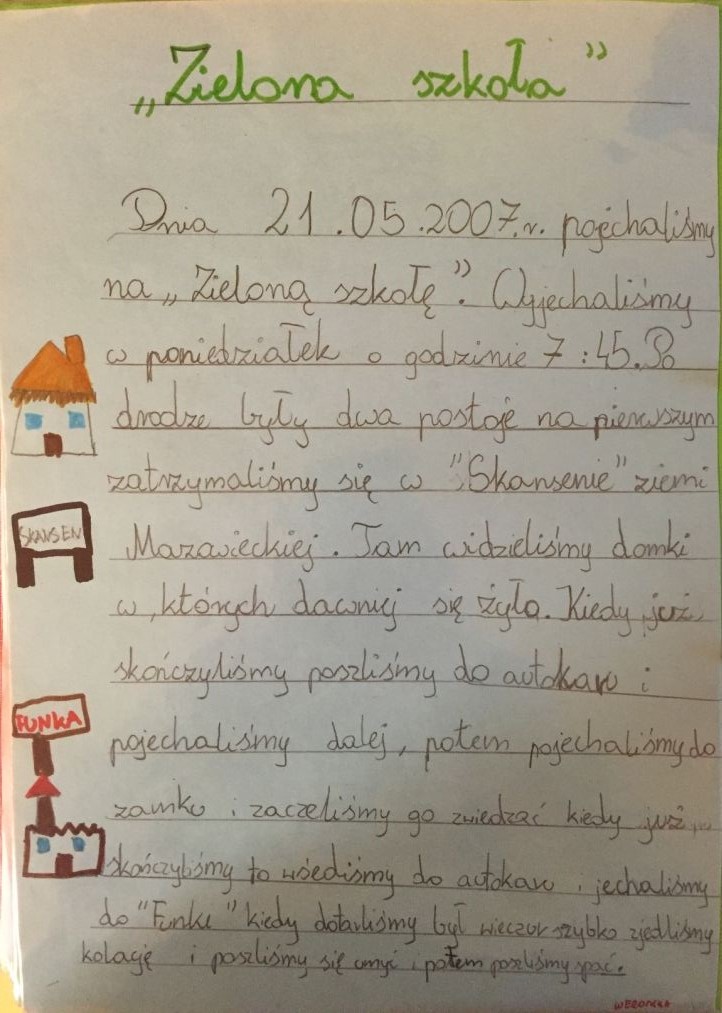 „Zielona szkoła”
Dnia 21.05.2007.r. pojechaliśmy
na „Zieloną szkołę”. Wyjechaliśmy
w poniedziałek o godzinie 7:45. Po
drodze były dwa postoje na pierwszym
zatrzymaliśmy się w "Skansenie" ziemi
SKANSEN
Mazawieckiej. Tam widzieliśmy domki
w których dawniej się żyło. Kiedy już
skończyliśmy poszliśmy do autokaru i
FUNKA
pojechaliśmy dalej, potem pojechaliśmy do
zamku i zaczeliśmy go zwiedzać kiedy już
skończyliśmy to wsiediśmy do autokaru i jechaliśmy
do "Funki" kiedy dotarliśmy był wieczur szybko zjedliśmy
kolację i poszliśmy się umyć i potem poszliśmy spać.
WERONIKA